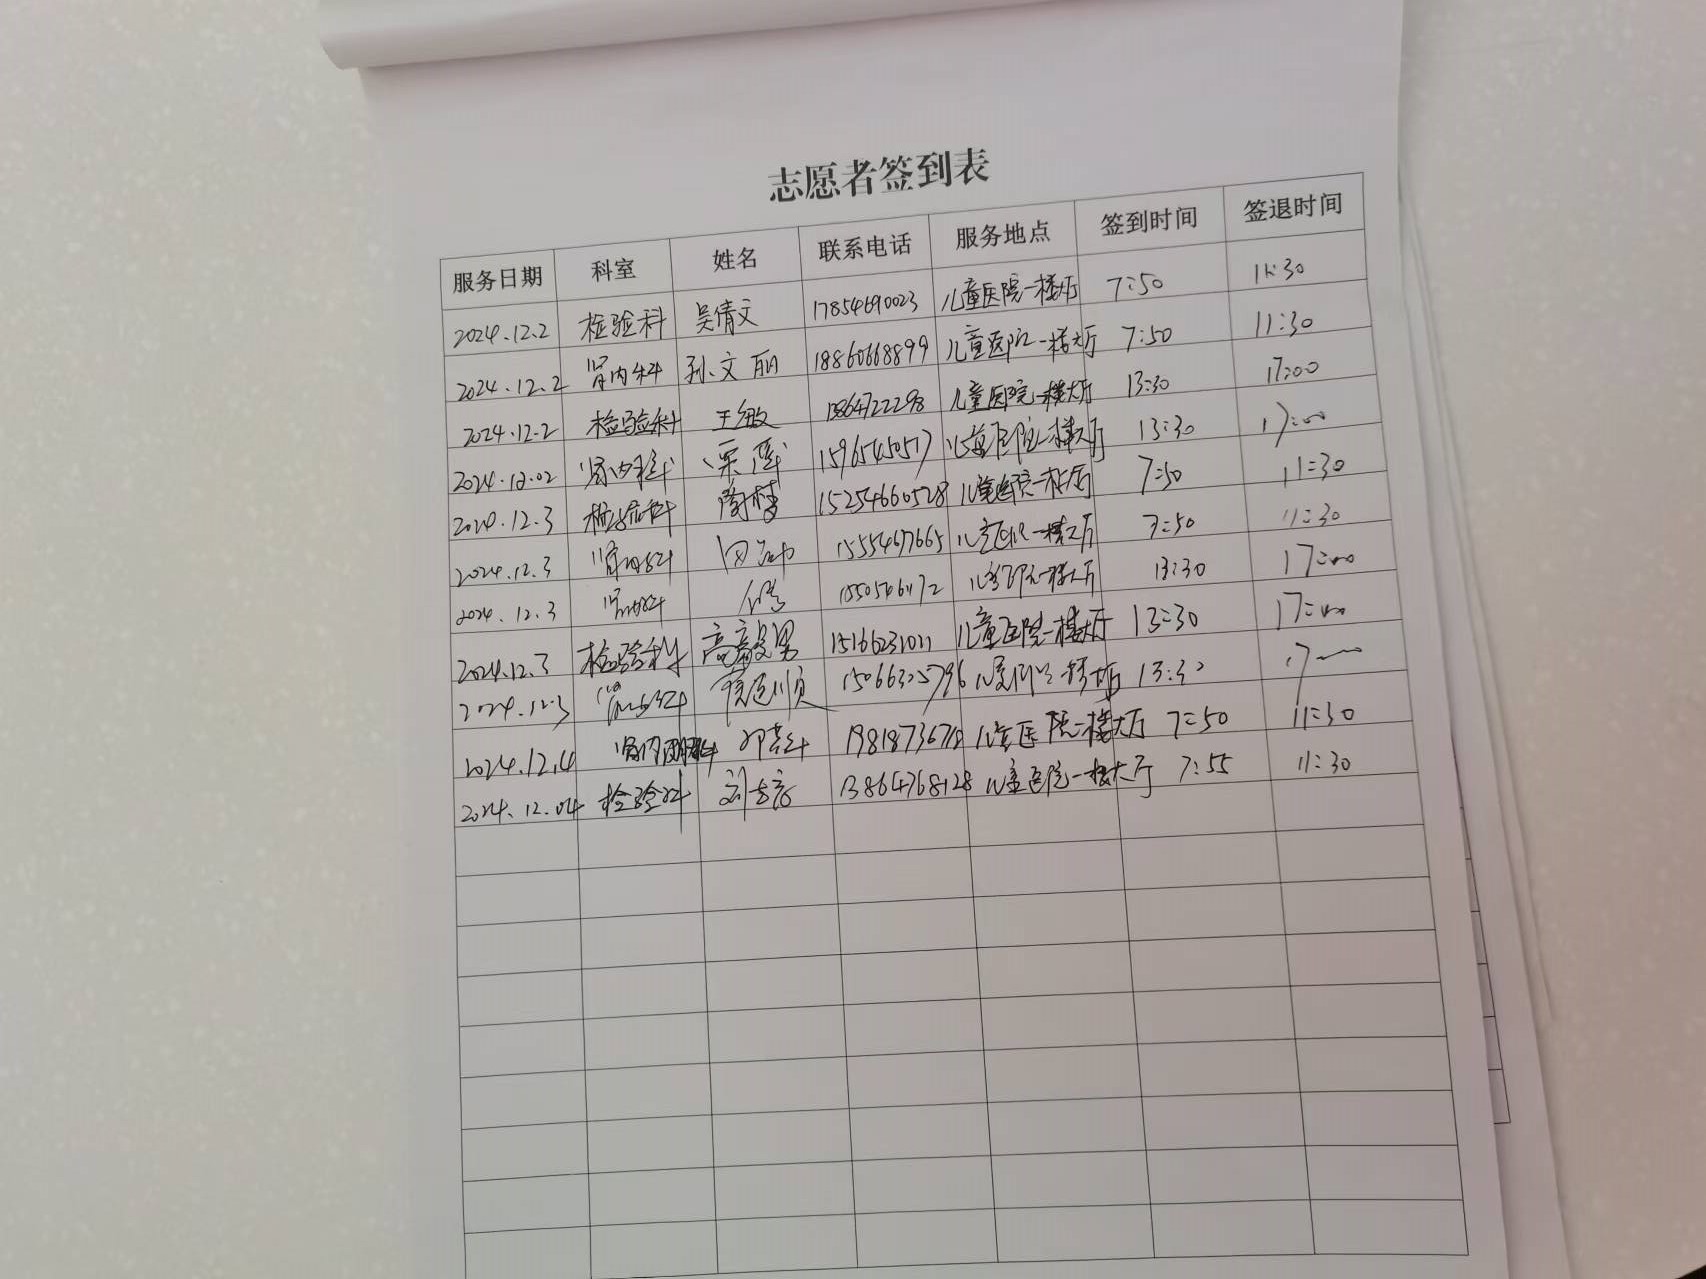 志愿者签到表
服务日期 科室 姓名 联系电话 服务地点 签到时间 签退时间
2024.12.2 检验科 吴倩文 17854690023 儿童医院一楼大厅 7:50 11:30
2024.12.2 肾内科 孙文丽 18860668899 儿童医院一楼大厅 7:50 11:30
2024.12.2 检验科 王敏 儿童医院一楼大厅 13:30 17:00
2024.12.02 肾内科 儿童医院一楼大厅 13:30 17:00
2024.12.3 检验科 15254660528 儿童医院一楼大厅 7:50 11:30
2024.12.3 肾内科 15554677665 儿童医院一楼大厅 7:50 11:30
2024.12.3 肾内科 儿童医院一楼大厅 13:30 17:00
2024.12.3 检验科 15166231011 儿童医院一楼大厅 13:30 17:00
2024.12.3 肾内科 15066305796 13:30 17
2024.12.4 肾内 科 儿童医院一楼大厅 7:50 11:30
2024.12.04 检验科 13864768128 儿童医院一楼大厅 7:55 11:30